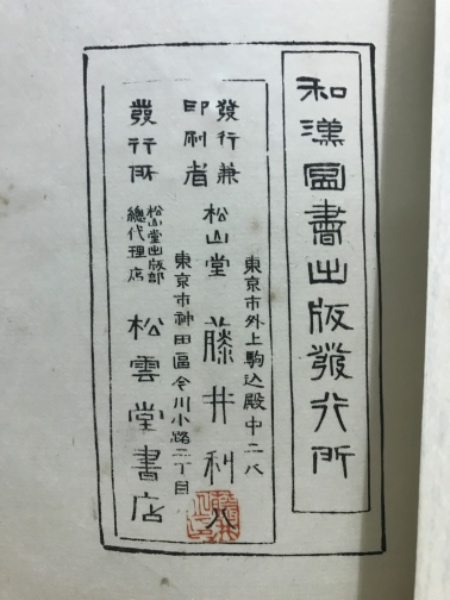 和漢圖書出版發行所
東京市外上駒込殿中二八
發行兼
印刷者
松山堂 藤井利八
東京市神田區今川小路二丁目
發行所
松山堂出版部
總代理店
松雲堂書店